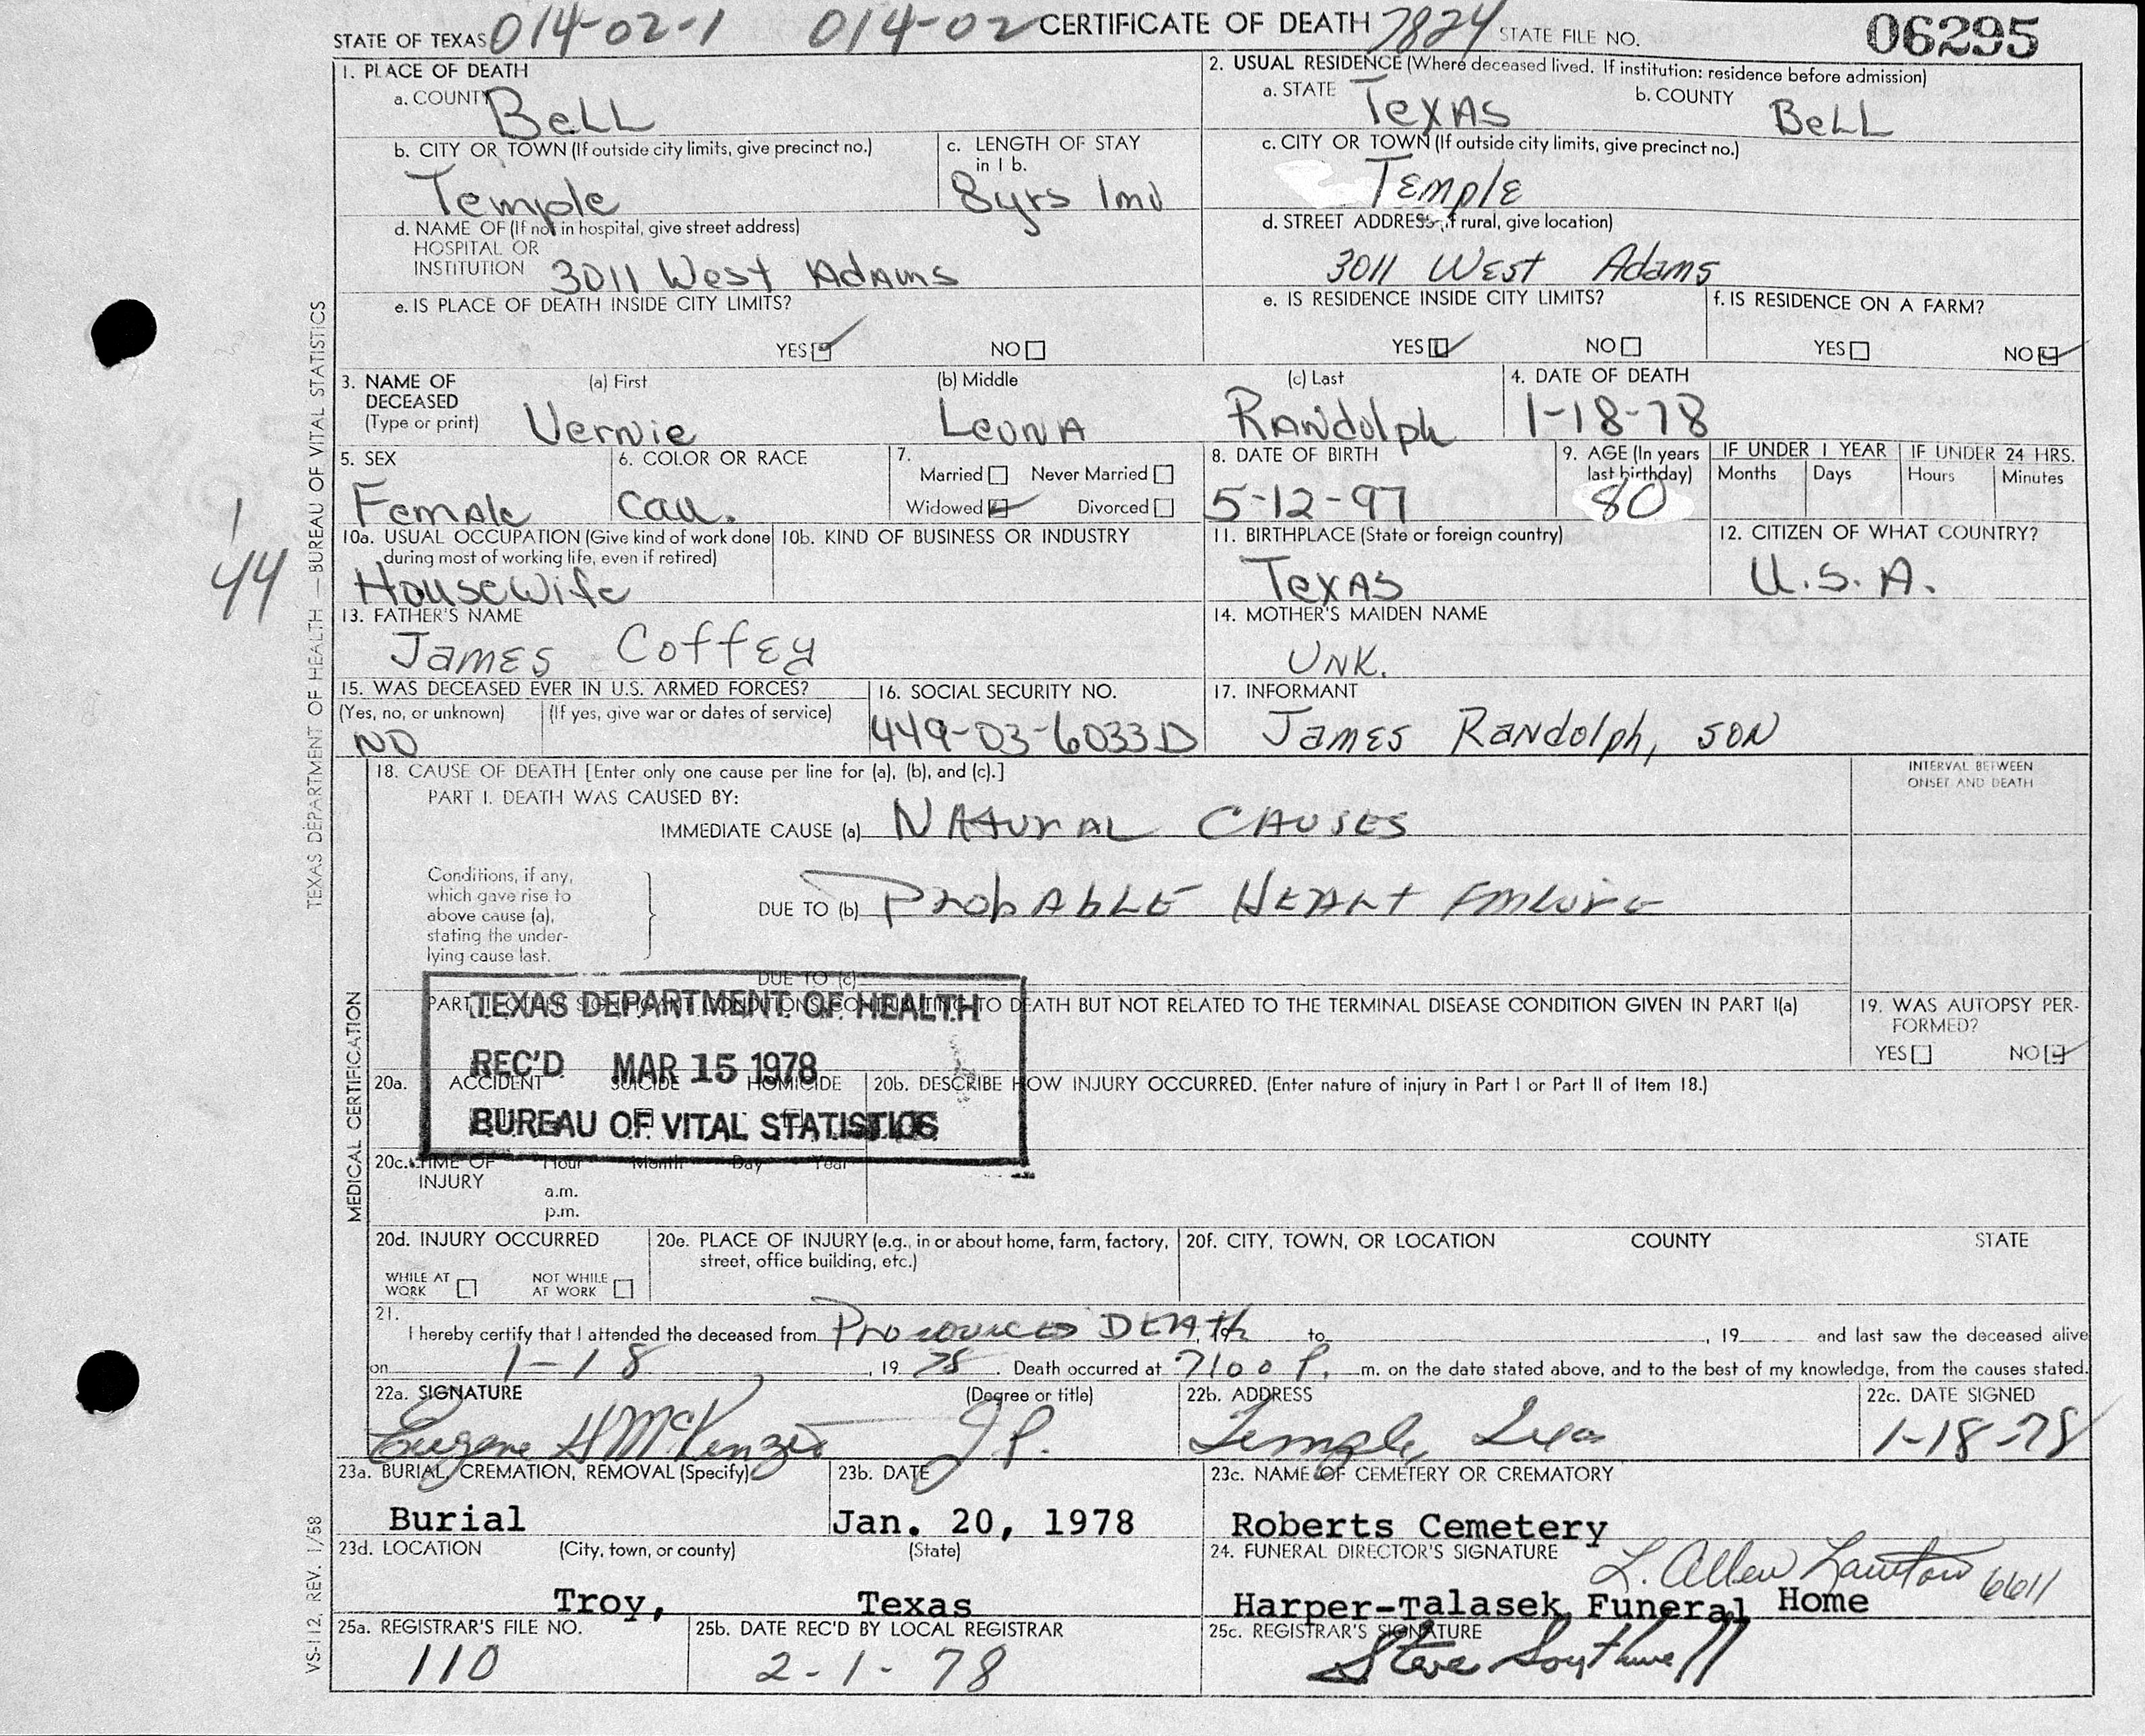 STATE OF TEXAS 014-02-1 014-02 CERTIFICATE OF DEATH 7824 STATE FILE NO. 06295
1. PLACE OF DEATH
a. COUNTY BeLL
2. USUAL RESIDENCE (Where deceased lived. If institution: residence before admission)
a. STATE TexAs b. COUNTY BeLL
b. CITY OR TOWN (If outside city limits, give precinct no.)
Temple
c. LENGTH OF STAY
in 1 b.
8yrs 1mo
c. CITY OR TOWN (If outside city limits, give precinct no.)
Temple
d. NAME OF (If not in hospital, give street address)
HOSPITAL OR
INSTITUTION 3011 West Adams
d. STREET ADDRESS (If rural, give location)
3011 West Adams
e. IS PLACE OF DEATH INSIDE CITY LIMITS?
YES NO
e. IS RESIDENCE INSIDE CITY LIMITS?
YES NO
f. IS RESIDENCE ON A FARM?
YES NO
3. NAME OF
DECEASED
(Type or print)
(a) First (b) Middle (c) Last
Vernie Leona Randolph
4. DATE OF DEATH
1-18-78
5. SEX
Female
6. COLOR OR RACE
Cau.
7.
Married Never Married
Widowed Divorced
8. DATE OF BIRTH
5-12-97
9. AGE (In years
last birthday)
80
IF UNDER 1 YEAR
Months Days
IF UNDER 24 HRS.
Hours Minutes
10a. USUAL OCCUPATION (Give kind of work done
during most of working life, even if retired)
Housewife
10b. KIND OF BUSINESS OR INDUSTRY
11. BIRTHPLACE (State or foreign country)
Texas
12. CITIZEN OF WHAT COUNTRY?
U.S.A.
1
44
13. FATHER'S NAME
James Coffey
14. MOTHER'S MAIDEN NAME
UNK.
15. WAS DECEASED EVER IN U.S. ARMED FORCES?
(Yes, no, or unknown) (If yes, give war or dates of service)
NO
16. SOCIAL SECURITY NO.
449-03-6033D
17. INFORMANT
James Randolph, SON
TEXAS DEPARTMENT OF HEALTH — BUREAU OF VITAL STATISTICS
MEDICAL CERTIFICATION
18. CAUSE OF DEATH [Enter only one cause per line for (a), (b), and (c).]
PART I. DEATH WAS CAUSED BY:
IMMEDIATE CAUSE (a) Natural Causes
INTERVAL BETWEEN
ONSET AND DEATH
Conditions, if any,
which gave rise to
above cause (a),
stating the under-
lying cause last.
DUE TO (b) Probable Heart Failure
DUE TO (c)
PART II. OTHER SIGNIFICANT CONDITIONS CONTRIBUTING TO DEATH BUT NOT RELATED TO THE TERMINAL DISEASE CONDITION GIVEN IN PART I(a)
19. WAS AUTOPSY PER-
FORMED?
YES NO
TEXAS DEPARTMENT OF HEALTH
REC'D MAR 15 1978
BUREAU OF VITAL STATISTICS
20a. ACCIDENT SUICIDE HOMICIDE
20b. DESCRIBE HOW INJURY OCCURRED. (Enter nature of injury in Part I or Part II of Item 18.)
20c. TIME OF
INJURY
Hour Month Day Year
a.m.
p.m.
20d. INJURY OCCURRED
WHILE AT
WORK
NOT WHILE
AT WORK
20e. PLACE OF INJURY (e.g., in or about home, farm, factory,
street, office building, etc.)
20f. CITY, TOWN, OR LOCATION COUNTY STATE
21.
I hereby certify that I attended the deceased from Pronounced Death to , 19 and last saw the deceased alive
on 1-18, 19 78. Death occurred at 7:00 P. m. on the date stated above, and to the best of my knowledge, from the causes stated.
22a. SIGNATURE (Degree or title)
Eugene H McKenzie J.P.
22b. ADDRESS
Temple, Texas
22c. DATE SIGNED
1-18-78
23a. BURIAL, CREMATION, REMOVAL (Specify)
Burial
23b. DATE
Jan. 20, 1978
23c. NAME OF CEMETERY OR CREMATORY
Roberts Cemetery
23d. LOCATION (City, town, or county) (State)
Troy, Texas
24. FUNERAL DIRECTOR'S SIGNATURE
L. Allen Lawton 6611
Harper-Talasek Funeral Home
25a. REGISTRAR'S FILE NO.
110
25b. DATE REC'D BY LOCAL REGISTRAR
2-1-78
25c. REGISTRAR'S SIGNATURE
Steve Southwell
VS-112, REV. 1/58